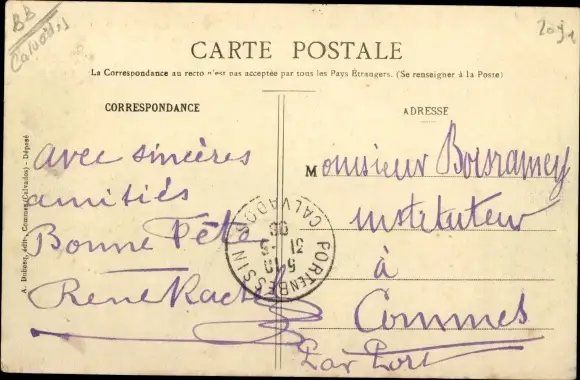 BB
Calvados
2091
CARTE POSTALE
La Correspondance au recto n'est pas acceptée par tous les Pays Étrangers. (Se renseigner à la Poste)
CORRESPONDANCE
avec sincères
amitiés
Bonne Fête
René
A. Dubosq, édit., Commes (Calvados) - Déposé
PORT EN BESSIN
CALVADOS
5 10
31 -5
ADRESSE
Monsieur Boisramey
instituteur
à
Commes
Par Port